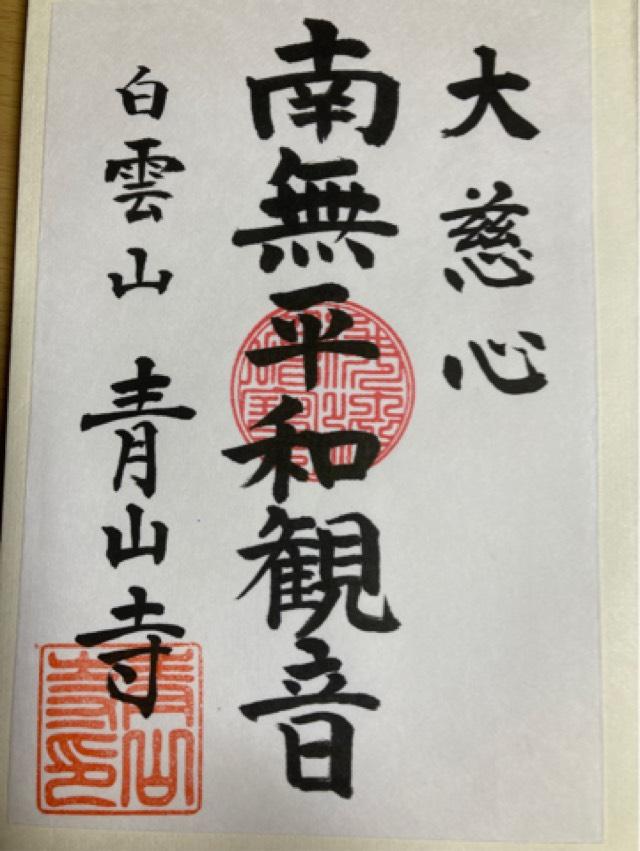 大慈心
南無平和観音
白雲山 青山寺
青山寺印